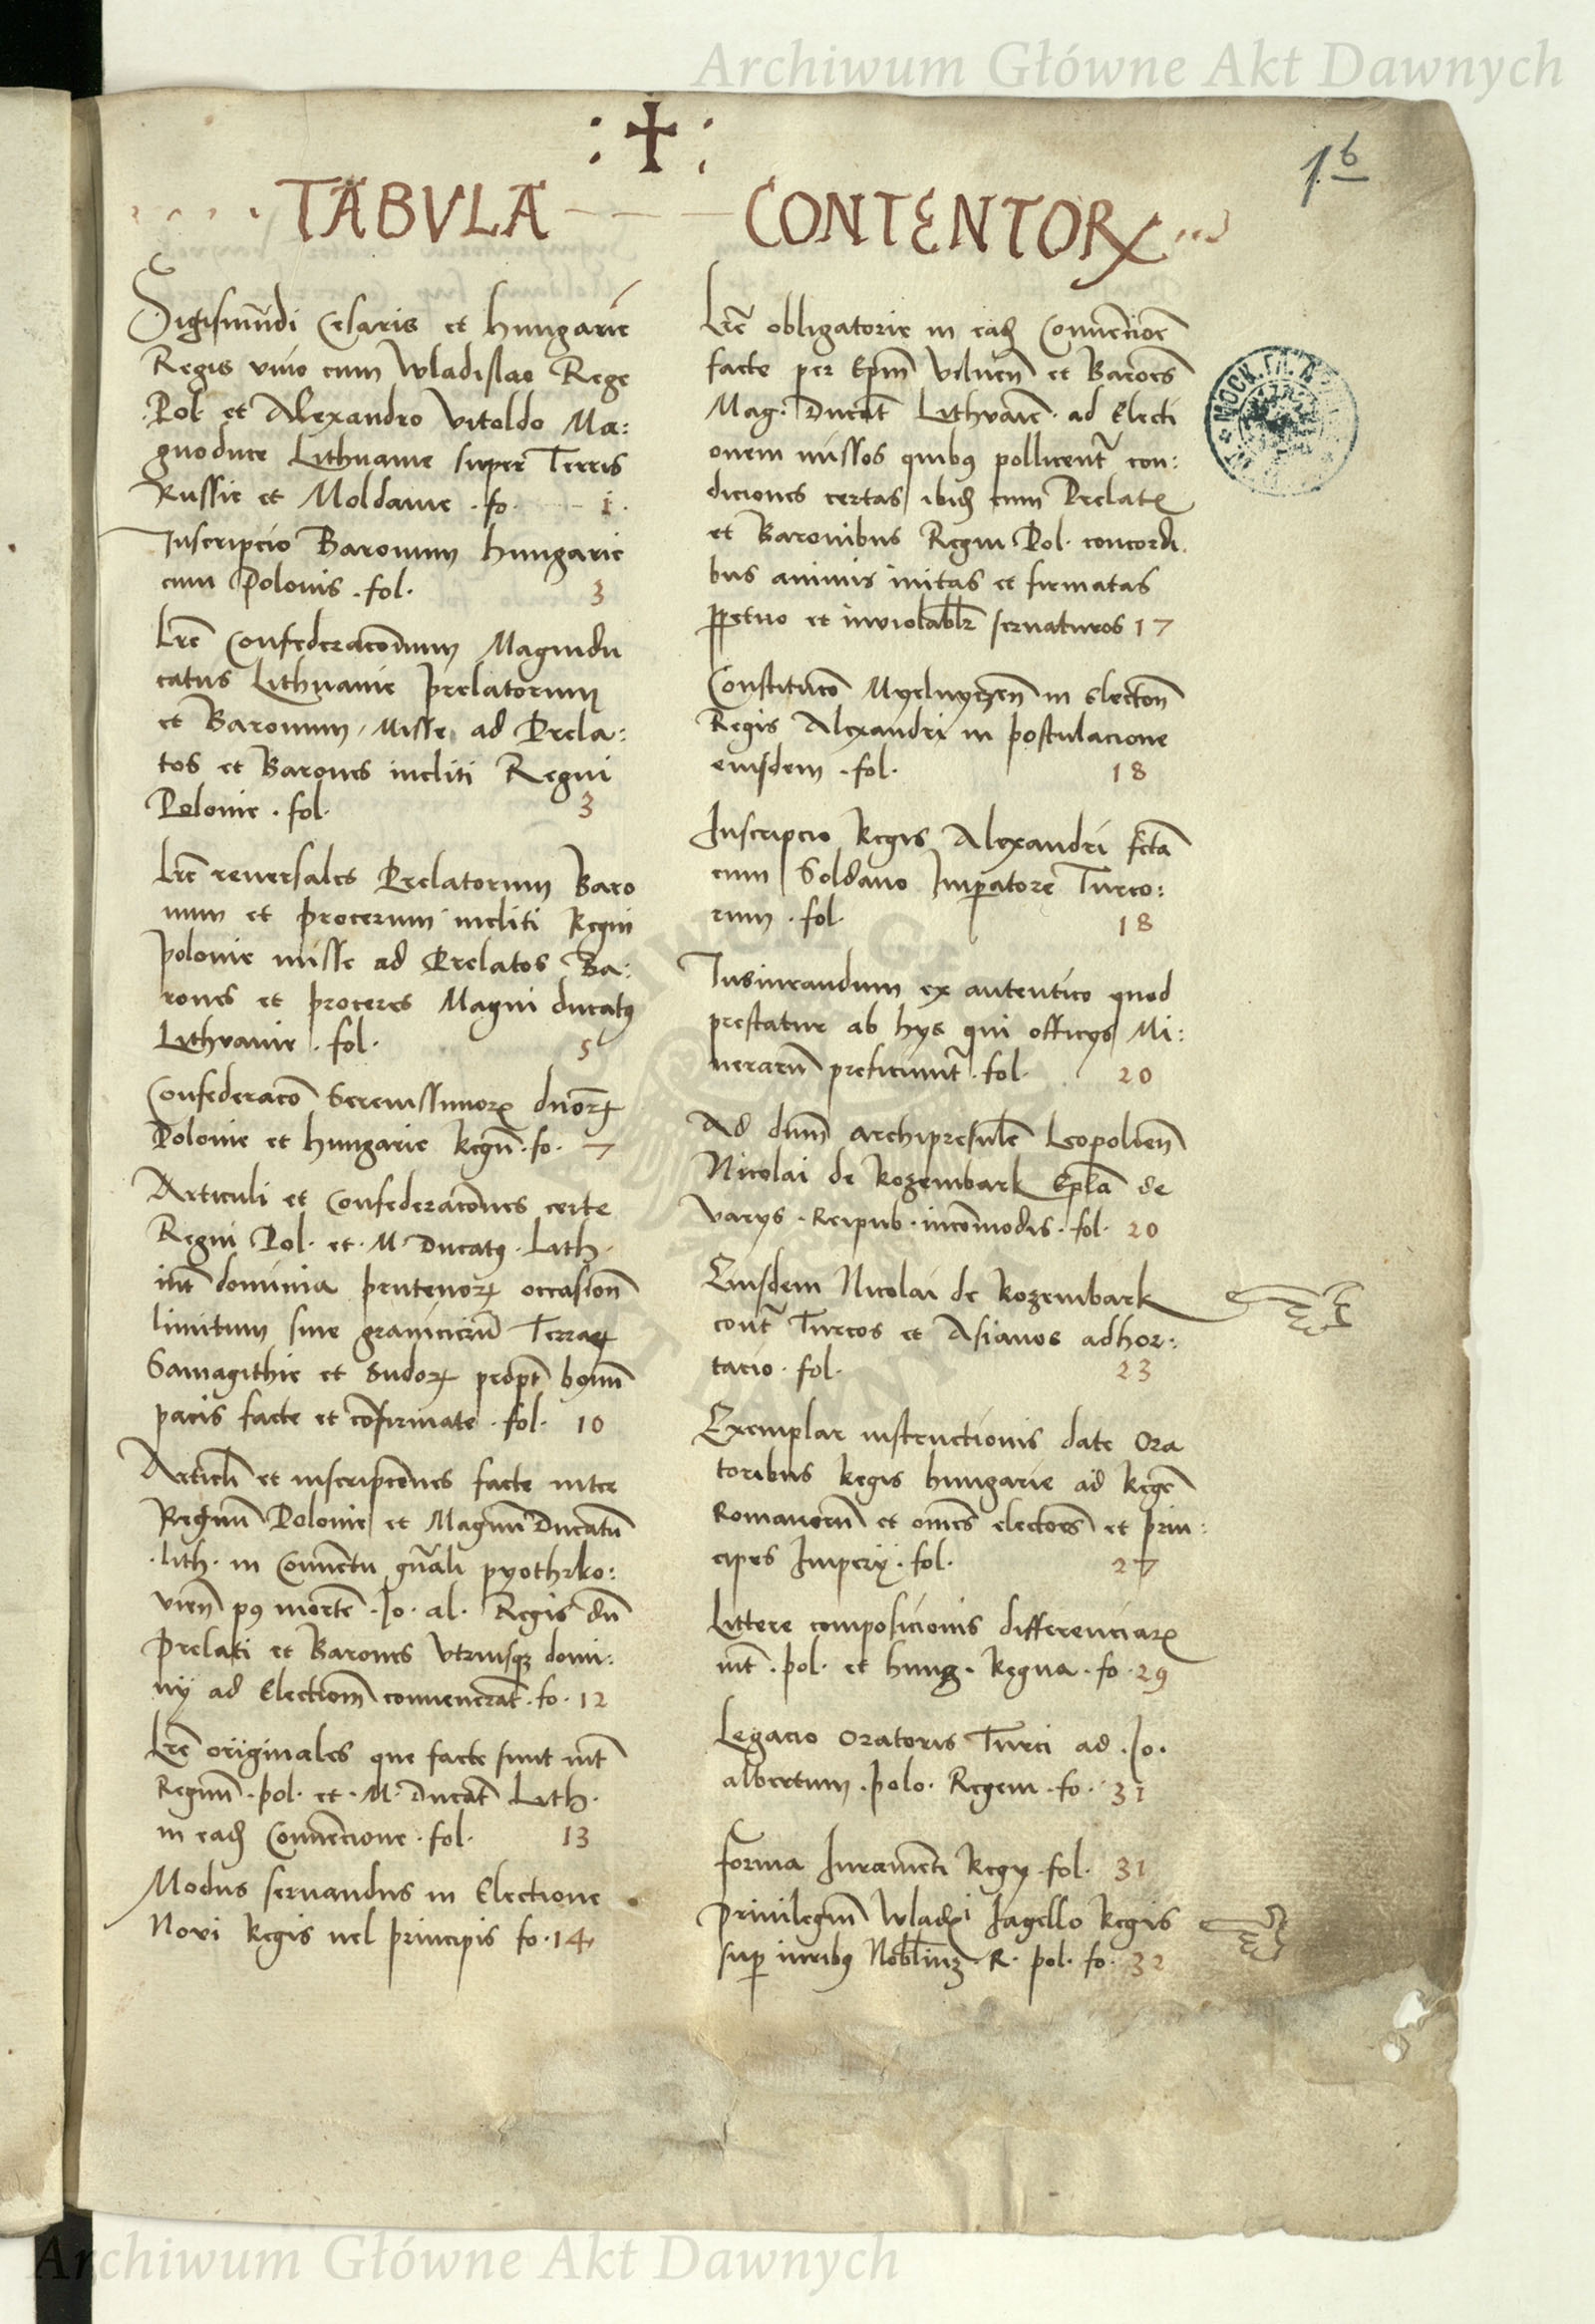 Archiwum Główne Akt Dawnych
1 b
TABVLA CONTENTORꝝ
Sigismūdi Cesaris et Hungarie
Regis vnio cum Wladislao Rege
Pol· et Alexandro Vitoldo Ma:
gnoduce Lithuanie super Terris
Russie et Moldauie · fo· 1·
Inscripcio Baronum Hungarie
cum Polonis · fol· 3
Lrē Confederacōnum Magnidu
catus Lithuanie prelatorum
et Baronum, Misse ad Prela:
tos et Barones incliti Regni
Polonie · fol· 3
Lrē reuersales Prelatorum Baro
num et procerum incliti Regni
polonie misse ad Prelatos Ba:
rones et proceres Magni ducatꝰ
Lithvanie · fol· 5
Confederacō Serenissimorꝝ dnorꝝ
Polonie et Hungarie Regū · fo· 7
Articuli et Confederacōnes certe
Regni Pol· et · M· Ducatꝰ · Lith·
int̄ dominia prutenorꝝ occasionē
limitum siue granicierū Terraꝝ
Samagithie et Sudorꝝ propt̄ bonū
pacis facte et cōfirmate · fol· 10
Articli et inscripcōnes facte inter
Regnū Polonie et Magnū Ducatū
·Lith· in Conuētu gnāli pyothrko:
vien̄ pꝰ mortē ·Jo· al· Regis dū
Prelati et Barones vtriusqꝫ domi:
nÿ ad Electionē conuenerāt · fo· 12
Lrē originales que facte sunt int̄
Regnū · pol· et · M· Ducat̄ Lith·
in eadē Conuēcione · fol· 13
Modus seruandus in Electione
Novi Regis uel principis fo· 14
Lrē obligatorie in eadē Conuēcioē
facte per Epm̄ Vilnen̄ et Baroēs
Mag· Ducat̄ Lithvaīe · ad Electi
onem missos quibꝰ pollicent̄ con:
diciones certas ibidē cum Prelatꝭ
et Baronibus Regni Pol· concordi
bus animis initas et firmatas
ꝑpetuo et inviolablr̄ seruaturos 17
Constitucō Myelnyczen̄ in electoē
Regis Alexandri in postulacione
eiusdem · fol· 18
Inscripcio Regis Alexandri fctā
cum Soldano Impatore Turco:
rum · fol· 18
Iusiurandum ex autentico quod
prestatur ab hys qui officys Mi:
nerarū preficiunt̄ · fol· 20
Ad dnm̄ archipresulē Leopolien̄
Nicolai de Rozembark Epl̄a de
varys · Reipub · incōmodis · fol· 20
Eiusdem Nicolai de Rozembark
cont̄ Turcos et Asianos adhor:
tacio · fol· 23
Exemplar instructionis date Ora
toribus Regis Hungarie ad Regē
Romanorū et omēs electores et prin:
cipes Imperÿ · fol· 27
Littere composicionis differenciarꝝ
int̄ · pol· et Hung· Regna · fo· 29
Legacio Oratoris Turci ad ·Jo·
albertum · polo· Regem · fo· 31
forma Iuramēti Regÿ · fol· 31
Priuilegiū Wladi Jagello Regis
suꝑ iuribꝰ R· pol· fo· 32
Archiwum Główne Akt Dawnych